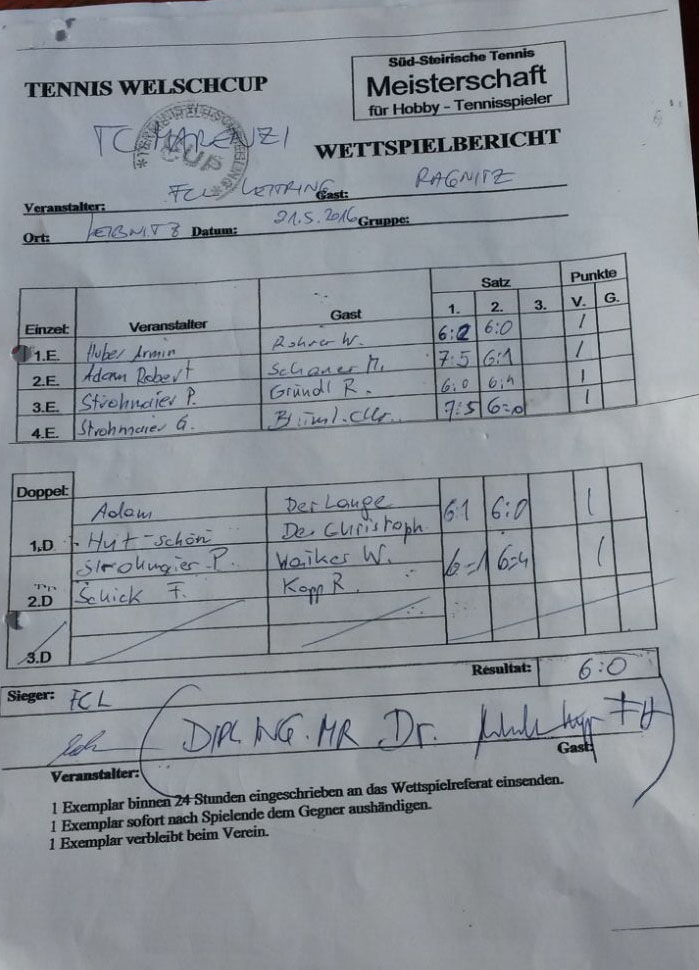 Süd-Steirische Tennis
Meisterschaft
für Hobby - Tennisspieler
TENNIS WELSCHCUP
TC MARENZI
CUP
WETTSPIELBERICHT
Veranstalter: FCL Gast: RAGNITZ
Ort: LEIBNITZ Datum: 21.5.2016 Gruppe:
Einzel: Veranstalter Gast Satz Punkte
1. 2. 3. V. G.
1.E. Huber Armin Rohrer W. 6:2 6:0 1
2.E. Adam Robert Schauer M. 7:5 6:1 1
3.E. Strohmaier P. Gründl R. 6:0 6:4 1
4.E. Strohmaier G. 7:5 6:0 1
Doppel:
Adam Der Lange
1.D Hut-schön Der Christoph 6:1 6:0 1
Strohmaier P. W.
2.D Schick F. Kopp R. 6:1 6:4 1
3.D
Resultat: 6:0
Sieger: FCL
DIPL ING. MR Dr.
Veranstalter: Gast:
1 Exemplar binnen 24 Stunden eingeschrieben an das Wettspielreferat einsenden.
1 Exemplar sofort nach Spielende dem Gegner aushändigen.
1 Exemplar verbleibt beim Verein.